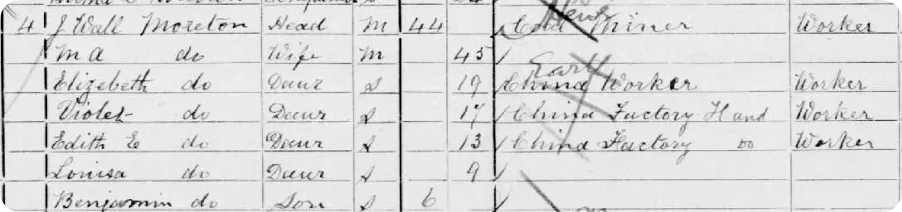 4 J Wall Moreton Head M 44 Coal Miner Worker
M A do Wife M 45
Elizebeth do Daur S 19 China Worker Worker
Violet do Daur S 17 China Factory Hand Worker
Edith E do Daur S 13 China Factory do Worker
Louisa do Daur S 9
Benjamin do Son S 6